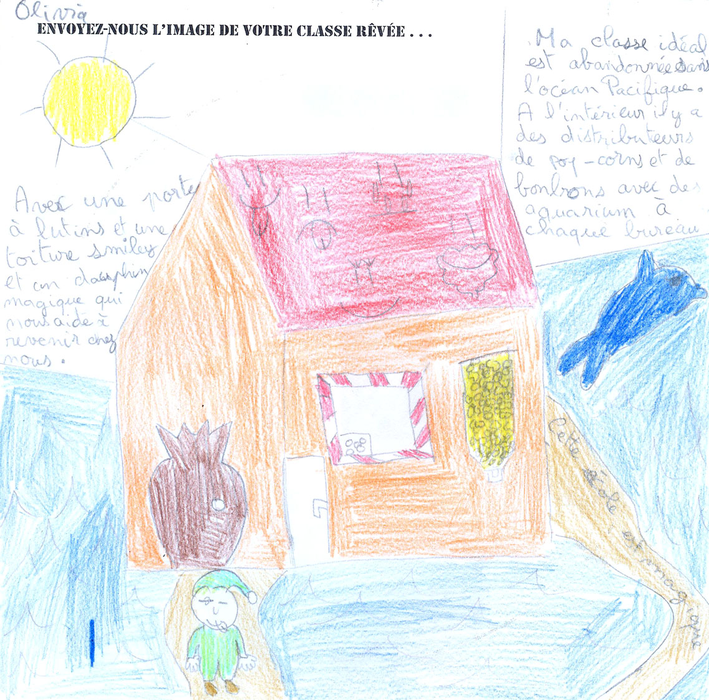 Olivia
ENVOYEZ-NOUS L'IMAGE DE VOTRE CLASSE RÊVÉE . . .
Ma classe idéal
est abandonnée dans
l'océan Pacifique.
A l'intérieur il y a
des distributeurs
de pop-corns et de
bonbons avec des
aquarium à
chaque bureau
Avec une porte
à lutins et une
toiture smiley
et un dauphin
magique qui
nous aide à
revenir chez
nous.
Cette école est magique